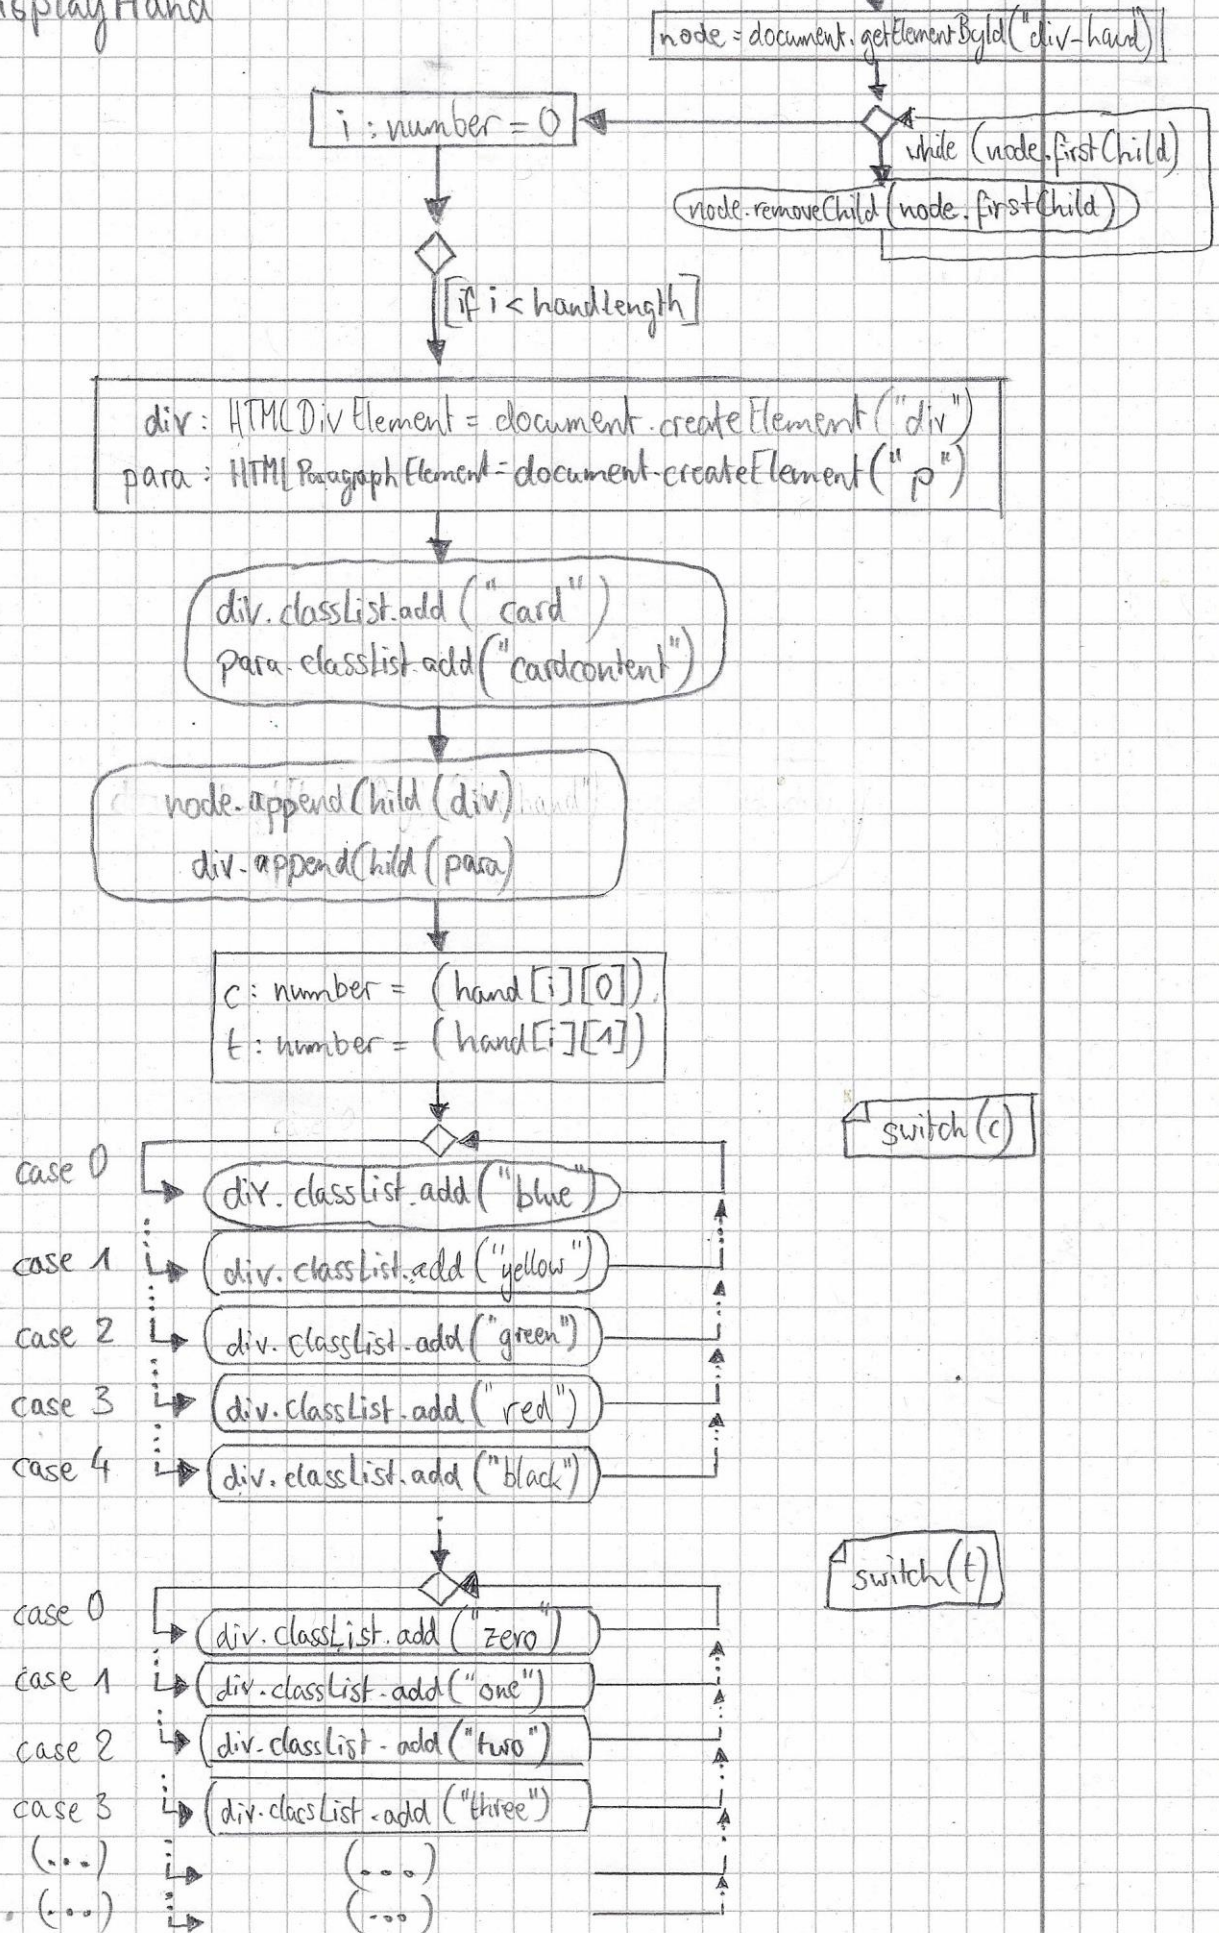 isplayHand
node = document.getElementById("div-hand")
while (node.firstChild)
node.removeChild(node.firstChild)
i : number = 0
[if i < hand.length]
div : HTMLDivElement = document.createElement("div")
para : HTMLParagraphElement = document.createElement("p")
div.classList.add("card")
para.classList.add("cardcontent")
node.appendChild(div)
div.appendChild(para)
c : number = (hand[i][0])
t : number = (hand[i][1])
switch(c)
case 0 div.classList.add("blue")
case 1 div.classList.add("yellow")
case 2 div.classList.add("green")
case 3 div.classList.add("red")
case 4 div.classList.add("black")
switch(t)
case 0 div.classList.add("zero")
case 1 div.classList.add("one")
case 2 div.classList.add("two")
case 3 div.classList.add("three")
(...) (...)
(...) (...)